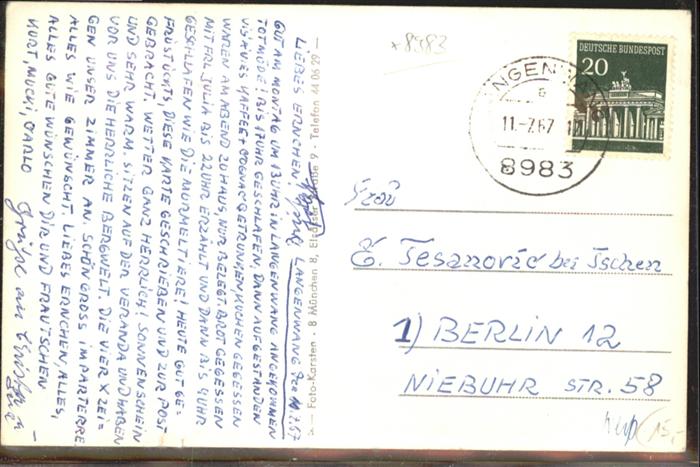 LANGENWANG, DEN 11.7.67
LIEBES ERNCHEN!
GUT AM MONTAG UM 13 UHR IN LANGENWANG ANGEKOMMEN
TOTMÜDE! BIS 17 UHR GESCHLAFEN DANN AUFGESTANDEN
KAFFEE + COGNAC GETRUNKEN, KUCHEN GEGESSEN
WAREN AM ABEND ZU HAUS, NUR BELEGT. BROT GEGESSEN
MIT FRL. JULIA BIS 22 UHR ERZÄHLT UND DANN BIS 9 UHR
GESCHLAFEN WIE DIE MURMELTIERE! HEUTE GUT GE-
FRÜSTÜCKT, DIESE KARTE GESCHRIEBEN UND ZUR POST
GEBRACHT. WETTER GANZ HERRLICH! SONNENSCHEIN
UND SEHR WARM. SITZEN AUF DER VERANDA UND HABEN
VOR UNS DIE HERRLICHE BERGWELT. DIE VIER X ZEI-
GEN UNSER ZIMMER AN. SCHÖN GROSS IM PARTERRE.
ALLES WIE GEWÜNSCHT. LIEBES ERNCHEN ALLES,
ALLES GUTE WÜNSCHEN DIR UND FRAU TSCHEN
KURT, MUCKI, CARLO
Grüße an
— Foto-Karsten · 8 München 8, 9 - Telefon 44 06 29 —
*8983
DEUTSCHE BUNDESPOST
20
11.-7.67
8983
Frau
E. Tesanović bei Tschen
1) BERLIN 12
NIEBUHR STR. 58
15,-